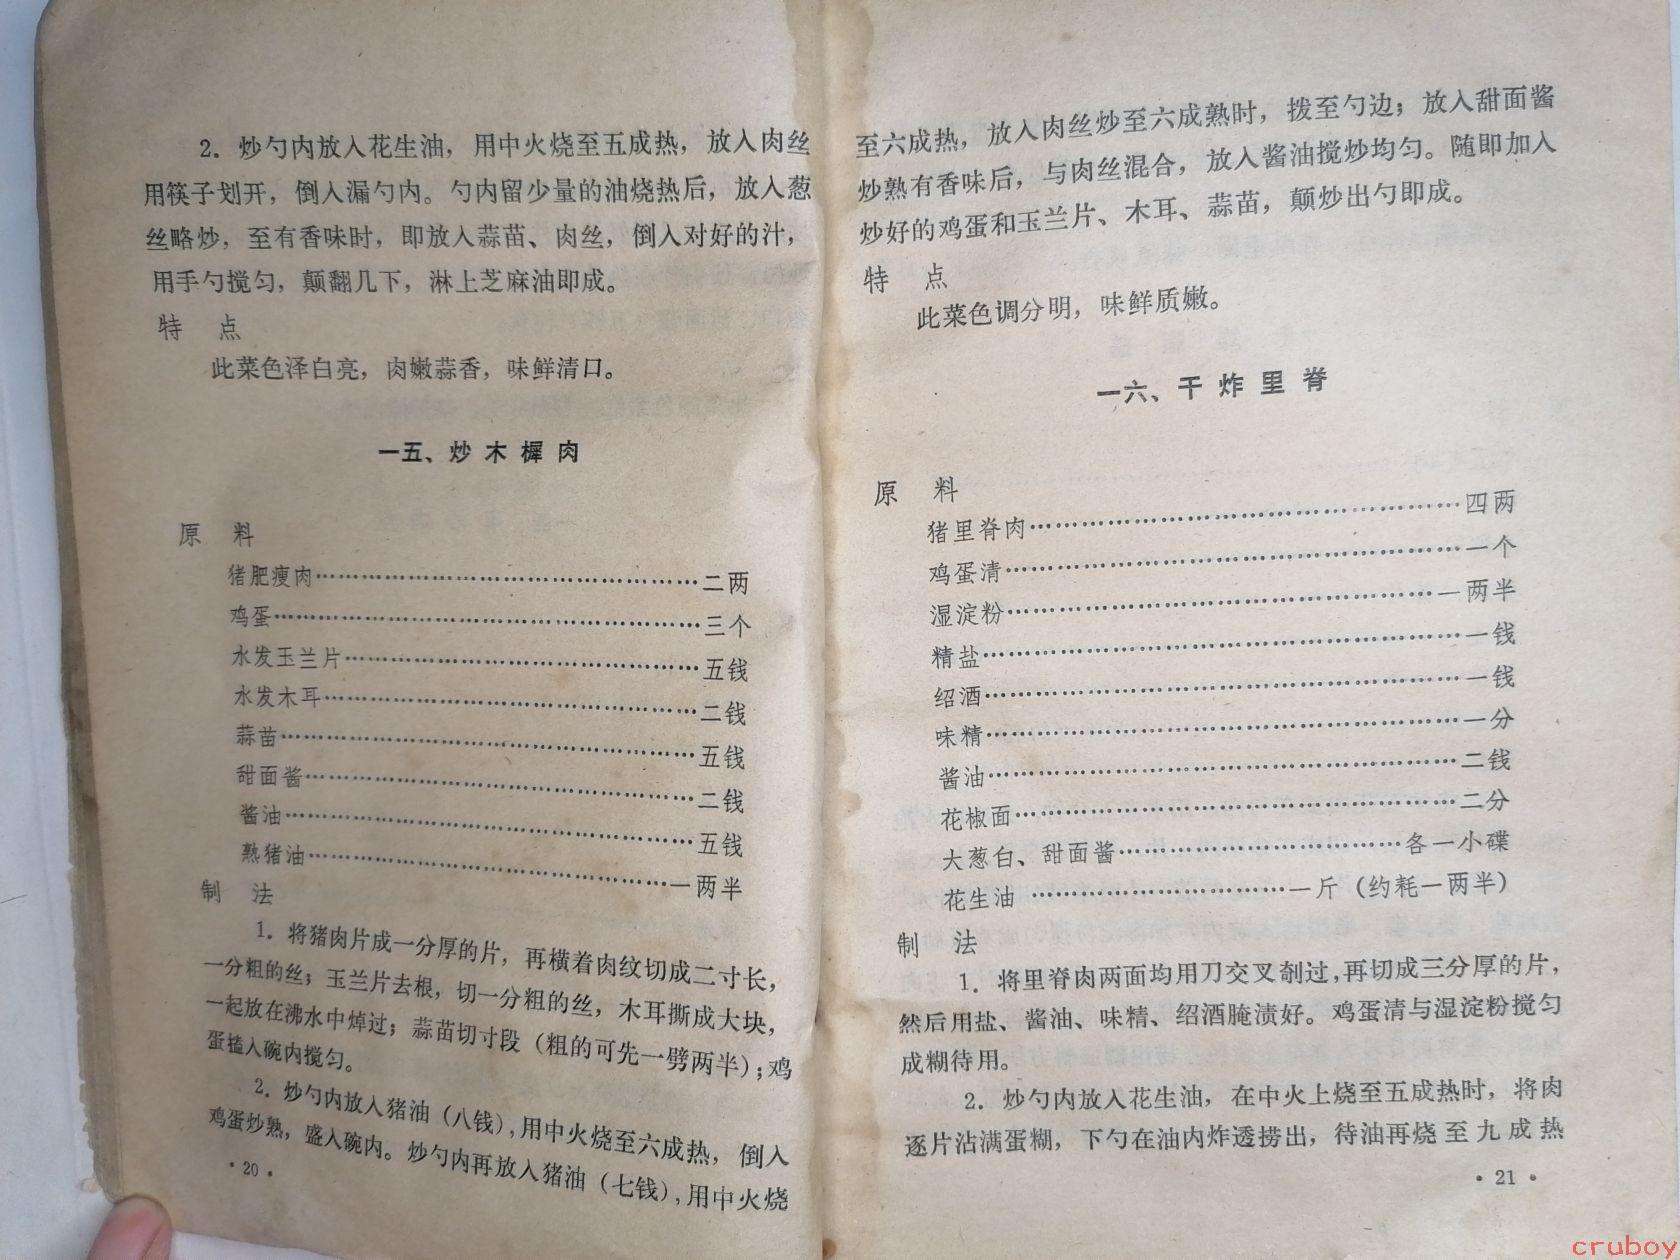 2．炒勺内放入花生油，用中火烧至五成热，放入肉丝
用筷子划开，倒入漏勺内。勺内留少量的油烧热后，放入葱
丝略炒，至有香味时，即放入蒜苗、肉丝，倒入对好的汁，
用手勺搅匀，颠翻几下，淋上芝麻油即成。
特　点
此菜色泽白亮，肉嫩蒜香，味鲜清口。
一五、炒木樨肉
原　料
猪肥瘦肉……………………………………………二两
鸡蛋…………………………………………………三个
水发玉兰片…………………………………………五钱
水发木耳……………………………………………二钱
蒜苗…………………………………………………五钱
甜面酱………………………………………………二钱
酱油…………………………………………………五钱
熟猪油………………………………………………一两半
制　法
1．将猪肉片成一分厚的片，再横着肉纹切成二寸长，
一分粗的丝；玉兰片去根，切一分粗的丝，木耳撕成大块，
一起放在沸水中焯过；蒜苗切寸段（粗的可先一劈两半）；鸡
蛋搕入碗内搅匀。
2．炒勺内放入猪油（八钱），用中火烧至六成热，倒入
鸡蛋炒熟，盛入碗内。炒勺内再放入猪油（七钱），用中火烧
·20·
至六成热，放入肉丝炒至六成熟时，拨至勺边；放入甜面酱
炒熟有香味后，与肉丝混合，放入酱油搅炒均匀。随即加入
炒好的鸡蛋和玉兰片、木耳、蒜苗，颠炒出勺即成。
特　点
此菜色调分明，味鲜质嫩。
一六、干炸里脊
原　料
猪里脊肉……………………………………………四两
鸡蛋清………………………………………………一个
湿淀粉………………………………………………一两半
精盐…………………………………………………一钱
绍酒…………………………………………………一钱
味精…………………………………………………一分
酱油…………………………………………………二钱
花椒面………………………………………………二分
大葱白、甜面酱……………………………………各一小碟
花生油………………………………一斤（约耗一两半）
制　法
1．将里脊肉两面均用刀交叉剞过，再切成三分厚的片，
然后用盐、酱油、味精、绍酒腌渍好。鸡蛋清与湿淀粉搅匀
成糊待用。
2．炒勺内放入花生油，在中火上烧至五成热时，将肉
逐片沾满蛋糊，下勺在油内炸透捞出，待油再烧至九成热
·21·
cruboy